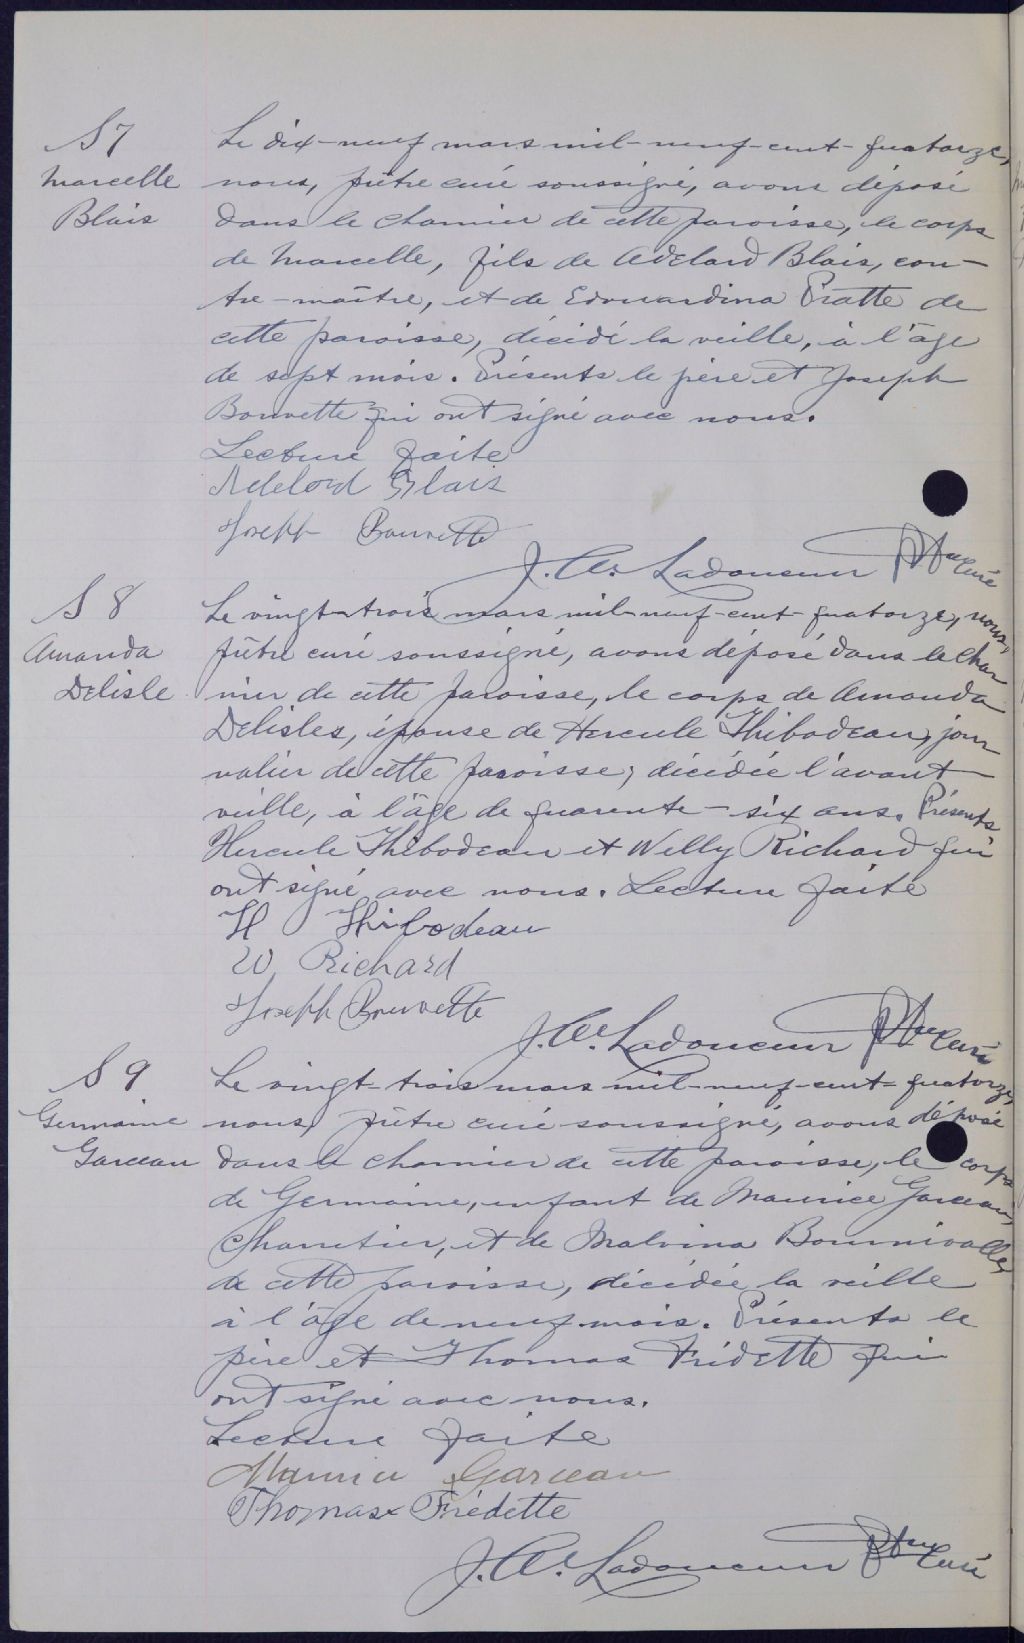 S 7
Marcelle
Blais
Le dix-neuf mars mil-neuf-cent-quatorze,
nous, prêtre curé soussigné, avons déposé
dans le charnier de cette paroisse, le corps
de Marcelle, fils de Adélard Blais, con-
tre-maître, et de Edouardina Pratte de
cette paroisse, décédé la veille, à l'âge
de sept mois. Présents le père et Joseph
Bouvette qui ont signé avec nous.
Lecture faite
Adelord Blais
Joseph Bouvette
J. A. Ladouceur Ptre Curé
S 8
Amanda
Delisle
Le vingt-trois mars mil-neuf-cent-quatorze, nous,
prêtre curé soussigné, avons déposé dans le char
nier de cette paroisse, le corps de Amanda
Delisles, épouse de Hercule Thibodeau, jour
nalier de cette paroisse, décédée l'avant
veille, à l'âge de quarente-six ans. Présents
Hercule Thibodeau et Willy Richard qui
ont signé avec nous. Lecture faite
H Thibodeau
W Richard
Joseph Bouvette
J. A. Ladouceur Ptre Curé
S 9
Germaine
Garceau
Le vingt-trois mars mil-neuf-cent-quatorze,
nous, prêtre curé soussigné, avons déposé
dans le charnier de cette paroisse, le corps
de Germaine, enfant de Maurice Garceau,
Charretier, et de Malvina Bournivalle,
de cette paroisse, décédée la veille
à l'âge de neuf mois. Présents le
père et Thomas Fridette qui
ont signé avec nous.
Lecture faite
Maurice Garceau
Thomas Frédette
J. A. Ladouceur Ptre Curé